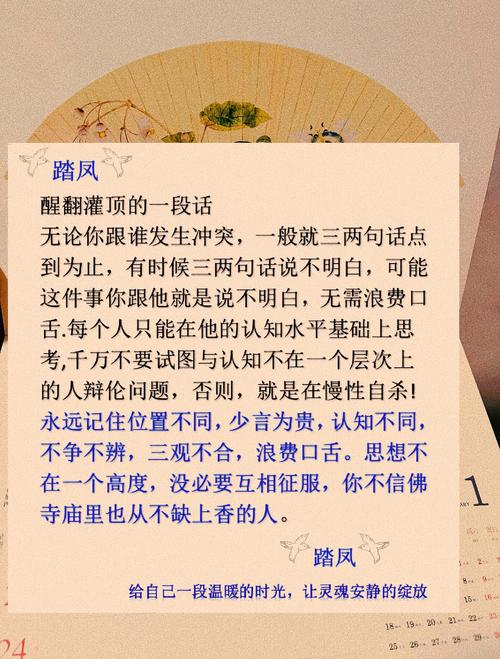 踏凤
醒翻灌顶的一段话
无论你跟谁发生冲突，一般就三两句话点
到为止，有时候三两句话说不明白，可能
这件事你跟他就是说不明白，无需浪费口
舌.每个人只能在他的认知水平基础上思
考,千万不要试图与认知不在一个层次上
的人辩论问题，否则，就是在慢性自杀!
永远记住位置不同，少言为贵，认知不同，
不争不辨，三观不合，浪费口舌。思想不
在一个高度，没必要互相征服，你不信佛
寺庙里也从不缺上香的人。
踏凤
给自己一段温暖的时光，让灵魂安静的绽放
1
18 19 20 21 22 23
25 26 27 28 29 30
24